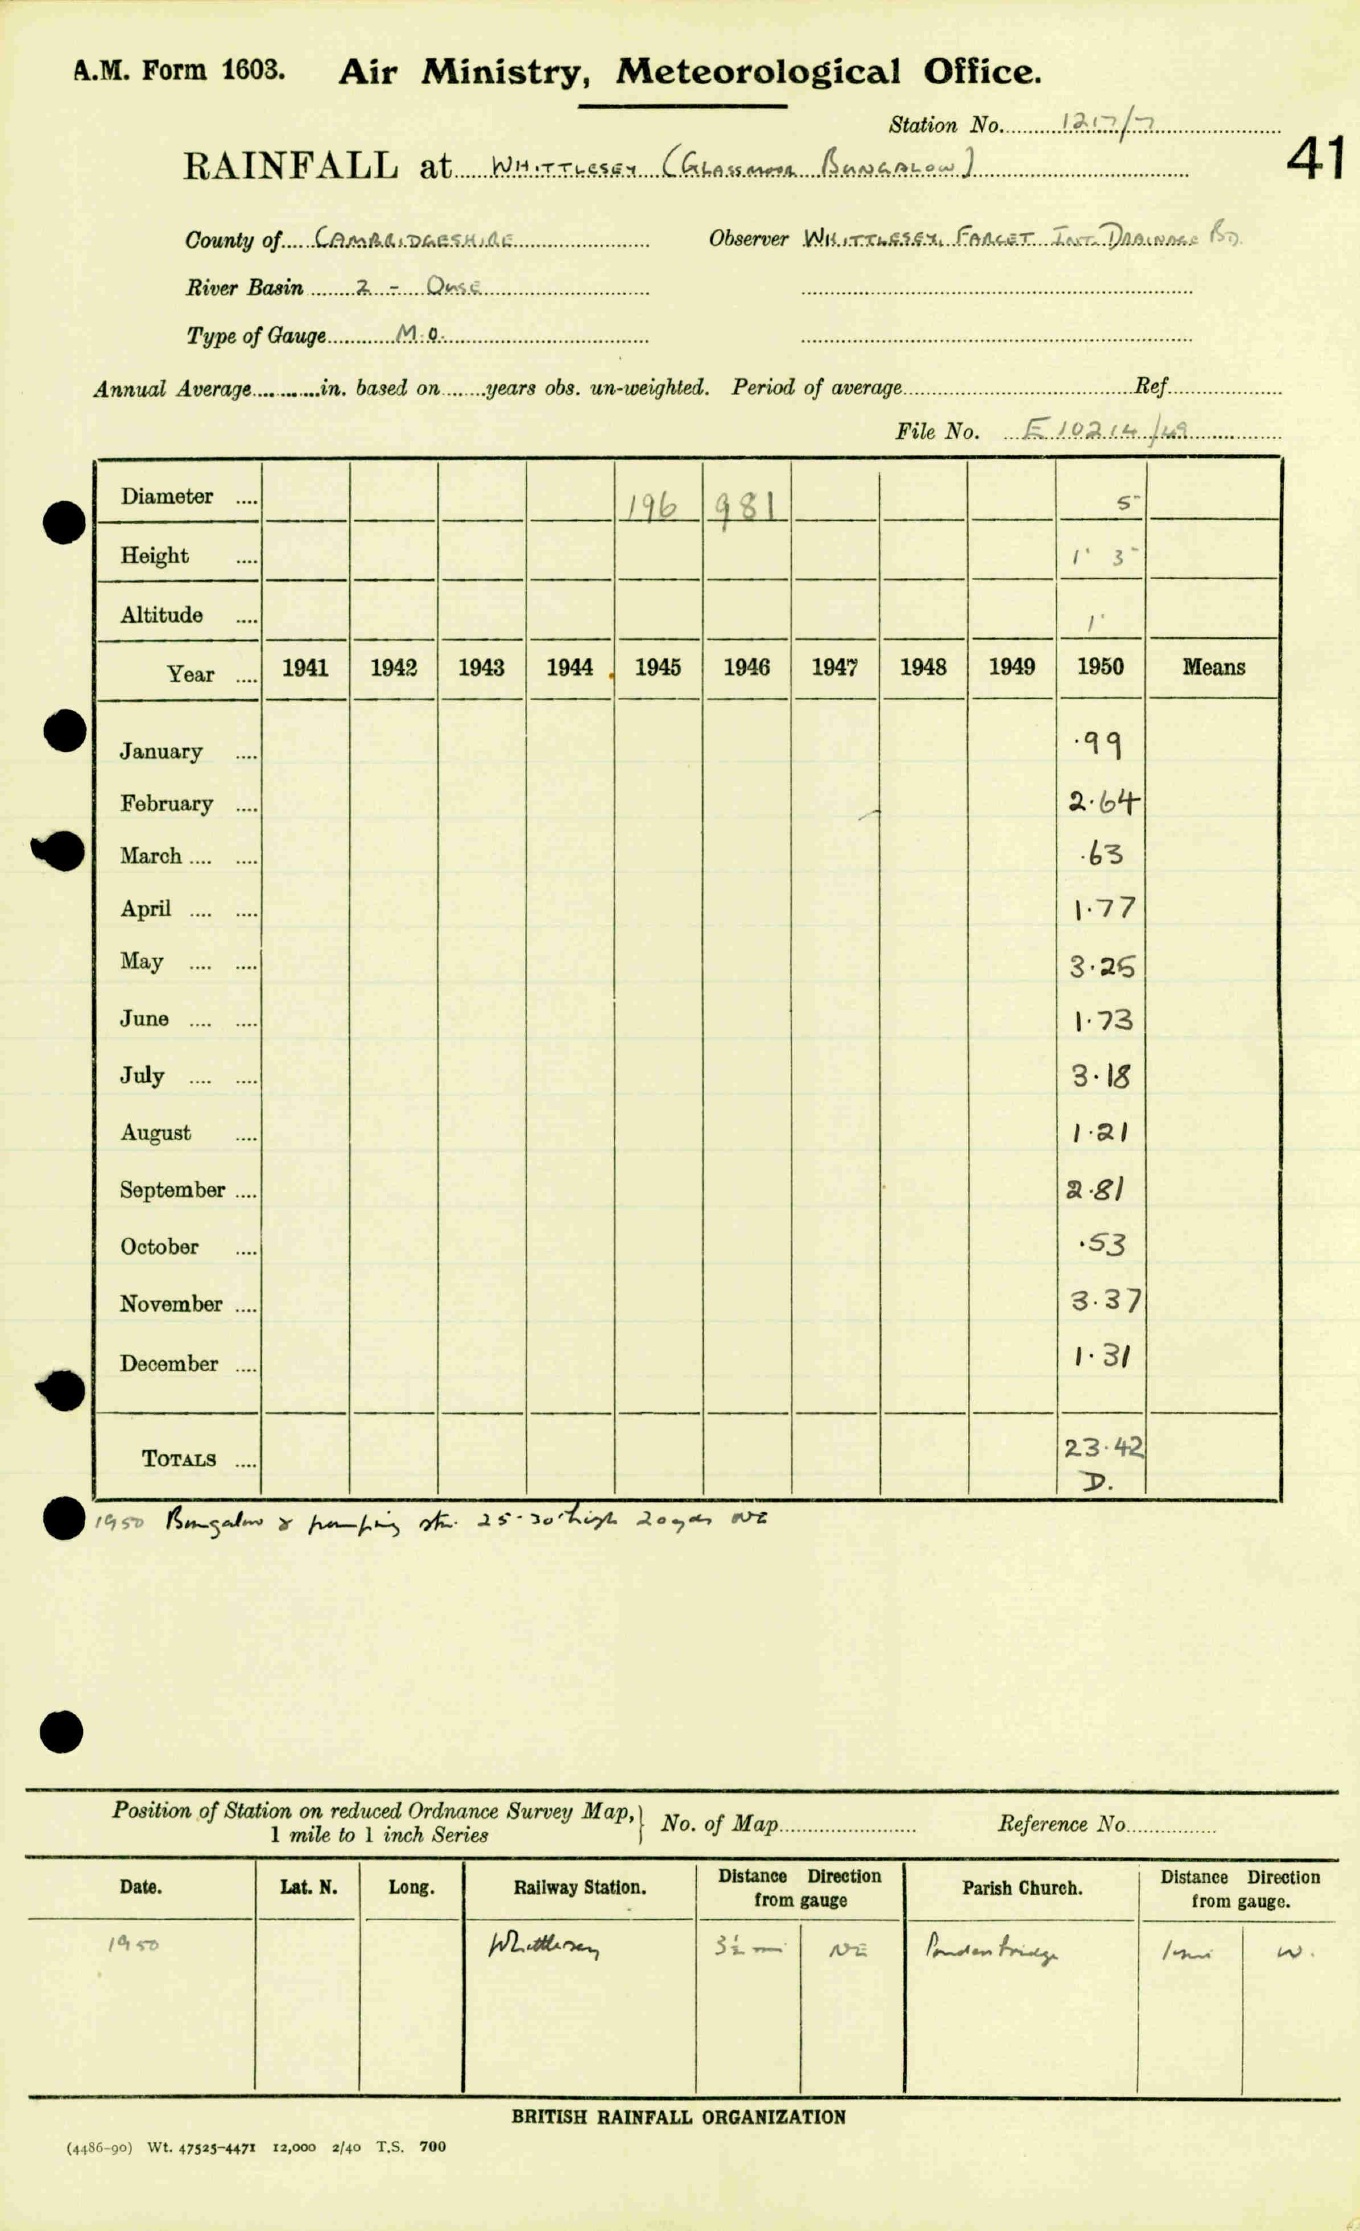 A.M. Form 1603. Air Ministry, Meteorological Office.
Station No. 1217/7
41
RAINFALL at WHITTLESEY (GLASSMOOR BUNGALOW)
County of CAMBRIDGESHIRE Observer WHITTLESEY, FARCET INT. DRAINAGE BD.
River Basin 2 - OUSE
Type of Gauge M.O.
Annual Average in. based on years obs. un-weighted. Period of average Ref.
File No. E 10214/49
Diameter 196 981 5"
Height 1' 3"
Altitude 1'
Year 1941 1942 1943 1944 1945 1946 1947 1948 1949 1950 Means
January .99
February 2.64
March .63
April 1.77
May 3.25
June 1.73
July 3.18
August 1.21
September 2.81
October .53
November 3.37
December 1.31
TOTALS 23.42
D.
1950 Bungalow & pumping stn. 25-30' high 20 yds NE
Position of Station on reduced Ordnance Survey Map, 1 mile to 1 inch Series } No. of Map Reference No.
Date. Lat. N. Long. Railway Station. Distance Direction from gauge Parish Church. Distance Direction from gauge.
1950 Whittlesey 3½ mi NE Pondersbridge 1 mi W.
BRITISH RAINFALL ORGANIZATION
(4486-90) Wt. 47525-4471 12,000 2/40 T.S. 700